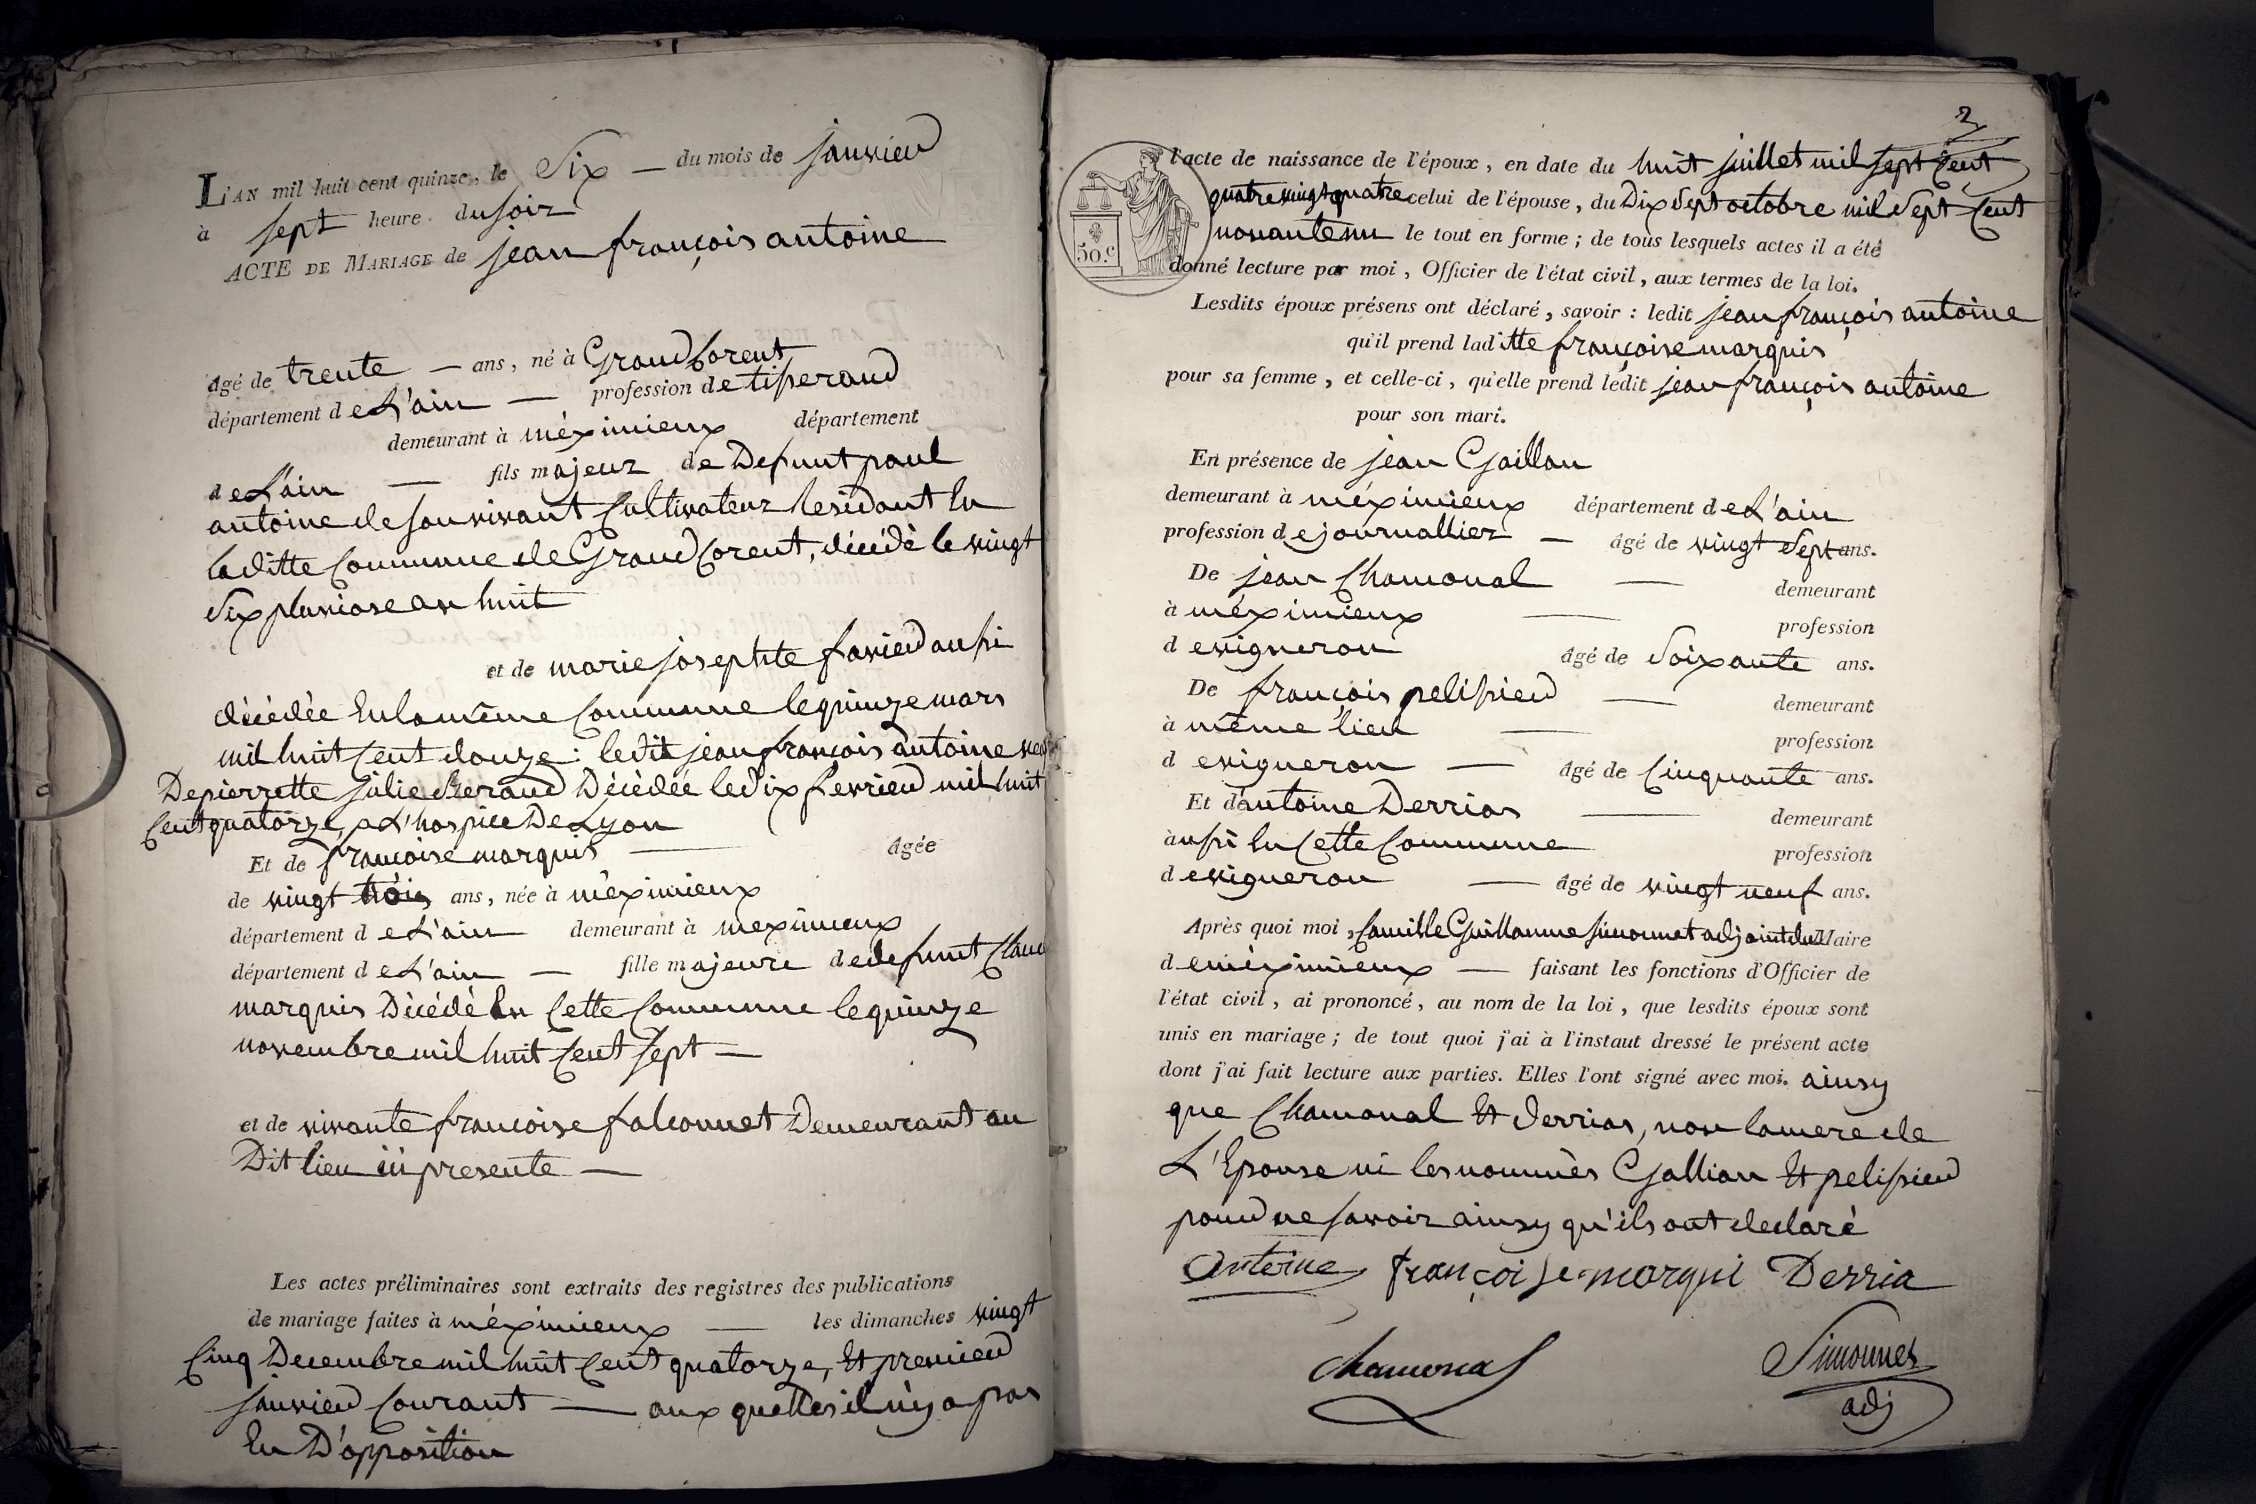 L'AN mil huit cent quinze, le Six — du mois de janvier
à sept heure du soir
ACTE DE MARIAGE de jean françois antoine
âgé de trente — ans, né à Grand Corent
département de L'ain — profession de tisserand
demeurant à méximieux département
de L'ain — fils majeur de Defunt paul
antoine de son vivant Cultivateur Residant En
laditte Commune de Grand Corent, décédé le vingt
Six pluviose an huit
et de marie josephte favier aussi
décédée En la même Commune le quinze mars
mil huit Cent douze : ledit jean françois antoine
De pierrette julie Decédée le Dix fevrier mil huit
Cent quatorze, a L'hospice De Lyon
Et de françoise marquis — âgée
de vingt trois ans, née à méximieux
département de L'ain demeurant à meximieux
département de L'ain — fille majeure de defunt
marquis Décédé En Cette Commune le quinze
novembre mil huit Cent Sept —
et de vivante françoise falconnet Demeurant au
Dit lieu ici presente —
Les actes préliminaires sont extraits des registres des publications
de mariage faites à méximieux — les dimanches vingt
Cinq Decembre mil huit Cent quatorze, Et premier
janvier Courant — aux quelles il n'y a pas
Eu D'opposition
2
50.c
l'acte de naissance de l'époux, en date du huit juillet mil sept Cent
quatre vingt quatre celui de l'épouse, du Dix Sept octobre mil Sept Cent
nonante un le tout en forme ; de tous lesquels actes il a été
donné lecture par moi, Officier de l'état civil, aux termes de la loi.
Lesdits époux présens ont déclaré, savoir : ledit jean françois antoine
qu'il prend laditte françoise marquis
pour sa femme, et celle-ci, qu'elle prend ledit jean françois antoine
pour son mari.
En présence de jean Gaillan
demeurant à méximieux département de L'ain
profession de journallier — âgé de vingt Sept ans.
De jean Chamonal — demeurant
à méximieux — profession
de vigneron âgé de Soixante ans.
De françois pelissier — demeurant
à même lieu — profession
de vigneron — âgé de Cinquante ans.
Et d'antoine Derrias — demeurant
aussi En Cette Commune profession
de vigneron — âgé de vingt neuf ans.
Après quoi moi, Camille Guillaume Simonnet adjoint du Maire
de méximieux — faisant les fonctions d'Officier de
l'état civil, ai prononcé, au nom de la loi, que lesdits époux sont
unis en mariage ; de tout quoi j'ai à l'instaut dressé le présent acte
dont j'ai fait lecture aux parties. Elles l'ont signé avec moi. ainsy
que Chamonal Et Derrias, non la mere de
L'Epouse ni les nommés Gallian Et pelissier
pour ne savoir ainsy qu'ils ont declaré
Antoine françoise marqui Derria
chamonal Simonnet
adj